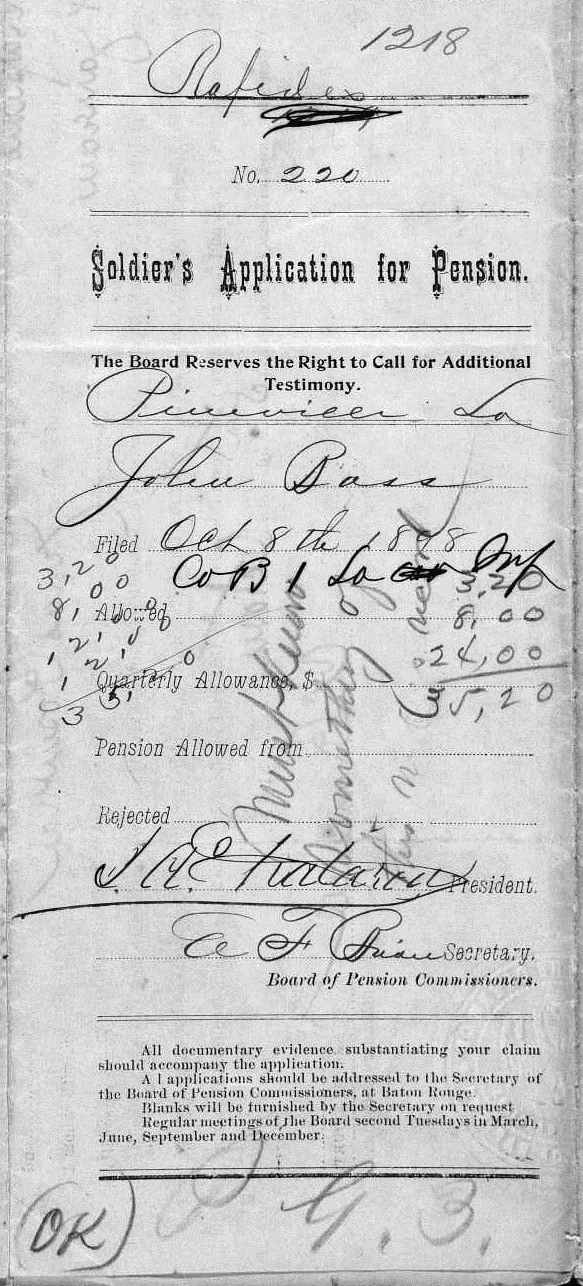 1218
Rapides
No. 220
Soldier's Application for Pension.
The Board Reserves the Right to Call for Additional
Testimony.
Pineville La
John Bass
Filed Oct 8th 1898
Co B 1 La
3,20 3,20
8,00 Allowed 8,00
24,00
Quarterly Allowance, $ 35,20
Pension Allowed from
Rejected
President.
Secretary.
Board of Pension Commissioners.
All documentary evidence substantiating your claim
should accompany the application.
A l applications should be addressed to the Secretary of
the Board of Pension Commissioners, at Baton Rouge.
Blanks will be furnished by the Secretary on request
Regular meetings of the Board second Tuesdays in March,
June, September and December.
OK
G. 3.